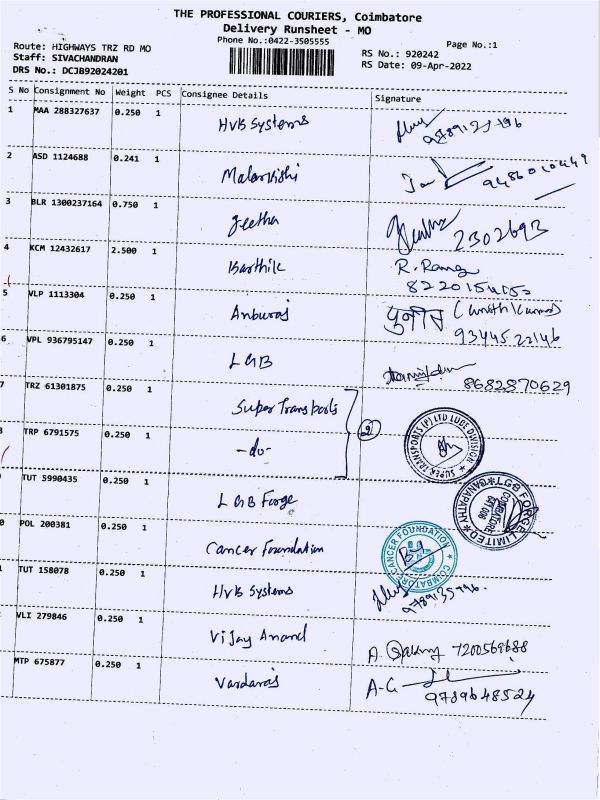 THE PROFESSIONAL COURIERS, Coimbatore
Delivery Runsheet - MO
Phone No.:0422-3505555
Page No.:1
Route: HIGHWAYS TRZ RD MO
Staff: SIVACHANDRAN
DRS No.: DCJB92024201
RS No.: 920242
RS Date: 09-Apr-2022
S No Consignment No Weight PCS Consignee Details Signature
1 MAA 288327637 0.250 1 HVB Systems
2 ASD 1124688 0.241 1 Malarvishi 9486010449
3 BLR 1300237164 0.750 1 Jeetha 2302693
4 KCM 12432617 2.500 1 Barthik R. Rang
5 VLP 1113304 0.250 1 Anburaj
9344522146
6 VPL 936795147 0.250 1 LGB 8682870629
7 TRZ 61301875 0.250 1 Super Transports
SUPER TRANSPORTS (P) LTD LUBE DIVISION
TRP 6791575 0.250 1 -do- 2
TUT 5990435 0.250 1 LGB Forge
LGB FORGE LIMITED GANAPATHY
COIMBATORE
0 POL 200381 0.250 1 Cancer Foundation
COIMBATORE CANCER FOUNDATION
TUT 158078 0.250 1 HVB Systems
VLI 279846 0.250 1 Vijay Anand A. 7200569688
MTP 675877 0.250 1 Vardaraj A-G
9789648524